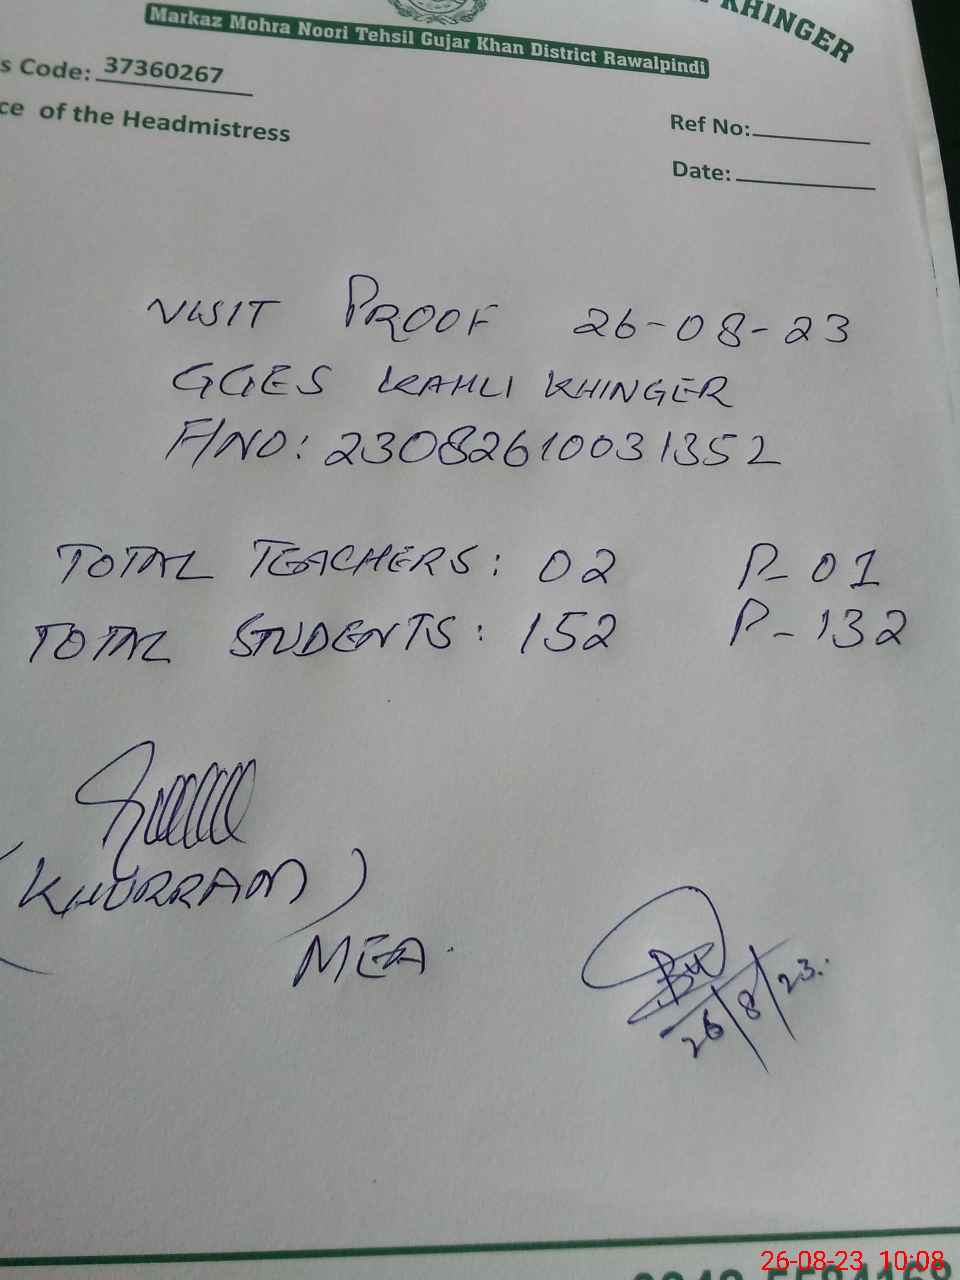 KHINGER
Markaz Mohra Noori Tehsil Gujar Khan District Rawalpindi
s Code: 37360267
ce of the Headmistress
Ref No:
Date:
VISIT PROOF 26-08-23
GGES KAHLI KHINGER
F/NO: 23082610031352
TOTAL TEACHERS: 02 P- 01
TOTAL STUDENTS: 152 P- 132
(KHURRAM)
MEA.
26/8/23.
26-08-23 10:08